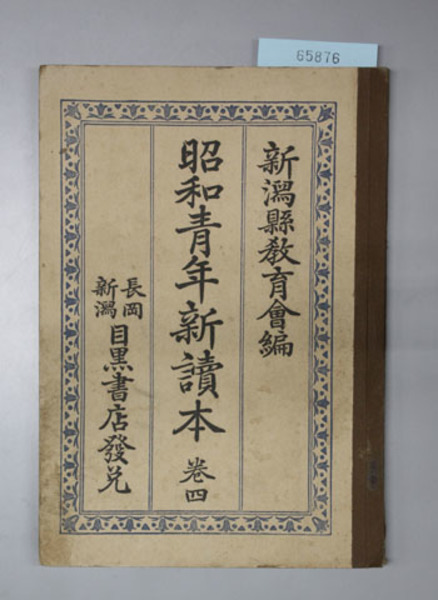 65876
新潟縣敎育會編
昭和青年新讀本 卷四
長岡
新潟
目黒書店發兌